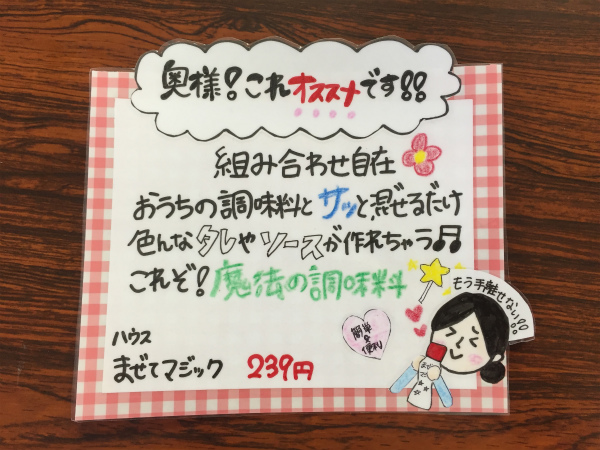 奥様!これオススメです!!
組み合わせ自在
おうちの調味料とサッと混ぜるだけ
色んなタレやソースが作れちゃう♫
これぞ!魔法の調味料
もう手離せない!!
簡単&便利
ハウス
まぜてマジック 239円